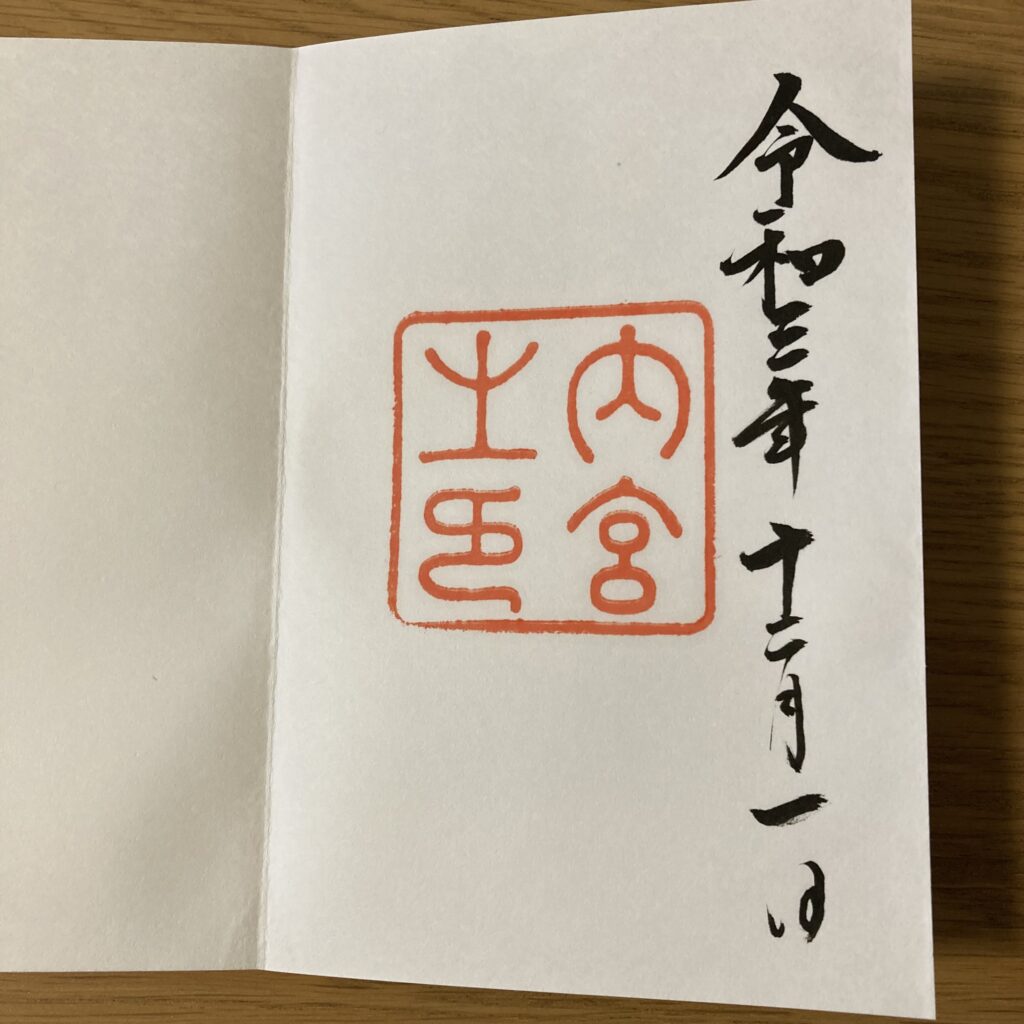 令和三年十二月一日
内宮
之印